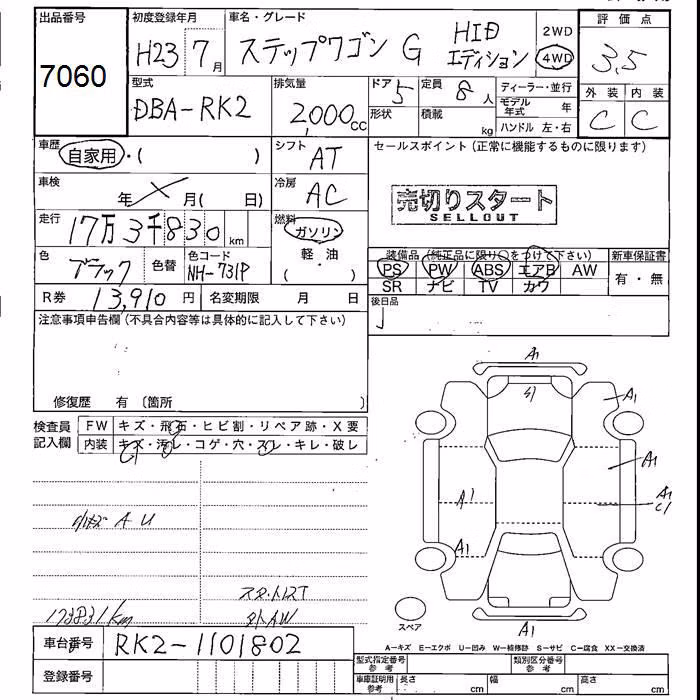 出品番号
7060
初度登録年月
H23 7月
車名・グレード
ステップワゴン G HID エディション
2WD
4WD
評価点
3.5
外装 内装
C C
型式
DBA-RK2
排気量
2,000cc
ドア 5
形状
定員 8人
積載 kg
ディーラー・並行
モデル年式 年
ハンドル 左・右
車歴
自家用・( )
シフト AT
セールスポイント (正常に機能するものに限ります)
売切りスタート
SELLOUT
車検
年 月( 日)
冷房 AC
走行
17万3千830km
燃料
ガソリン
軽・油
( )
色 ブラック
色替
色コード
NH-731P
装備品 (純正品に限り○をつけて下さい)
PS PW ABS エアB AW
SR ナビ TV カワ
新車保証書
有・無
R券 13,910円
名変期限 月 日
後日品
注意事項申告欄 (不具合内容等は具体的に記入して下さい)
修復歴 有 〔箇所 〕
検査員記入欄
FW キズ・飛石・ヒビ割・リペア跡・X要
内装 キズ・汚レ・コゲ・穴・スレ・キレ・破レ
小キズ A U
173831km
A1
A1
A1
A1
C1
A1
A1
A1
スペア
A1
A-キズ E-エクボ U-凹み W-補修跡 S-サビ C-腐食 XX-交換済
車台番号 RK2-1101802
登録番号
型式指定番号 参考
類別区分番号 参考
車庫証明用 参考
長さ cm
幅 cm
高さ cm